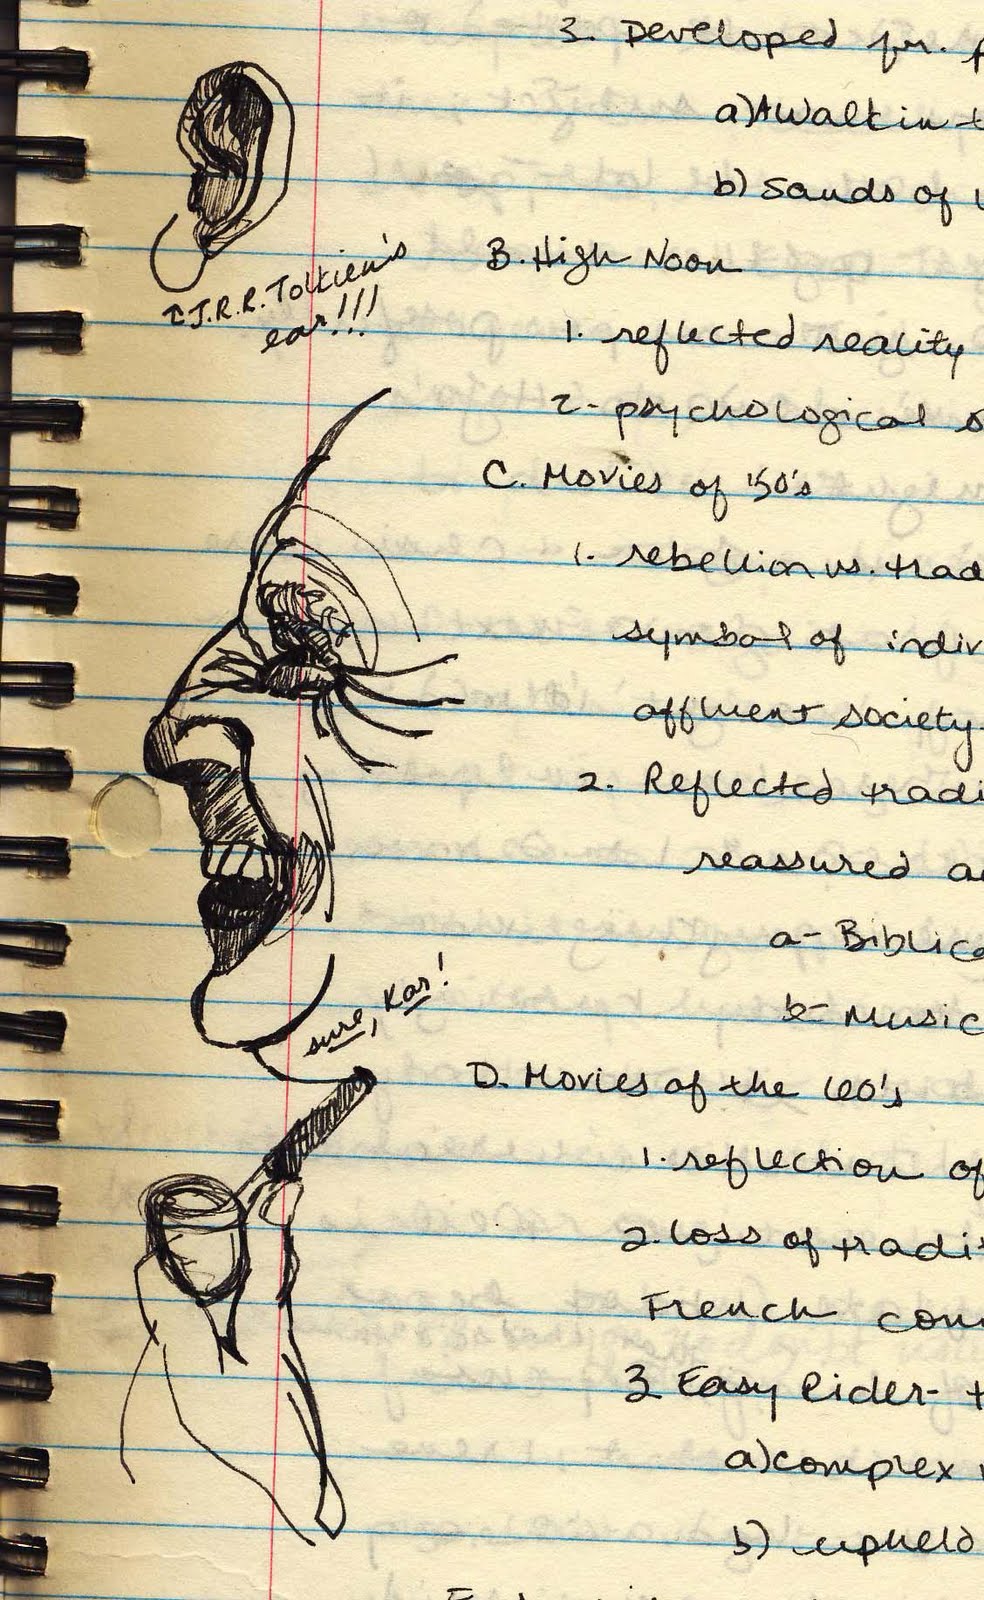 3. Developed for.
a) A Walk in
b) Sands of
B. High Noon
↑ J.R.R. Tolkien's
ear!!!
1. reflected reality
2- psychological
C. Movies of '50's
1. rebellion vs. trad
symbol of indiv
affluent society-
2. Reflected tradi
reassured
a- Biblica
sure, Kar!
b- Music
D. Movies of the 60's
1. reflection of
2. loss of tradit
French com
3 Easy Rider-
a) complex
b) upheld